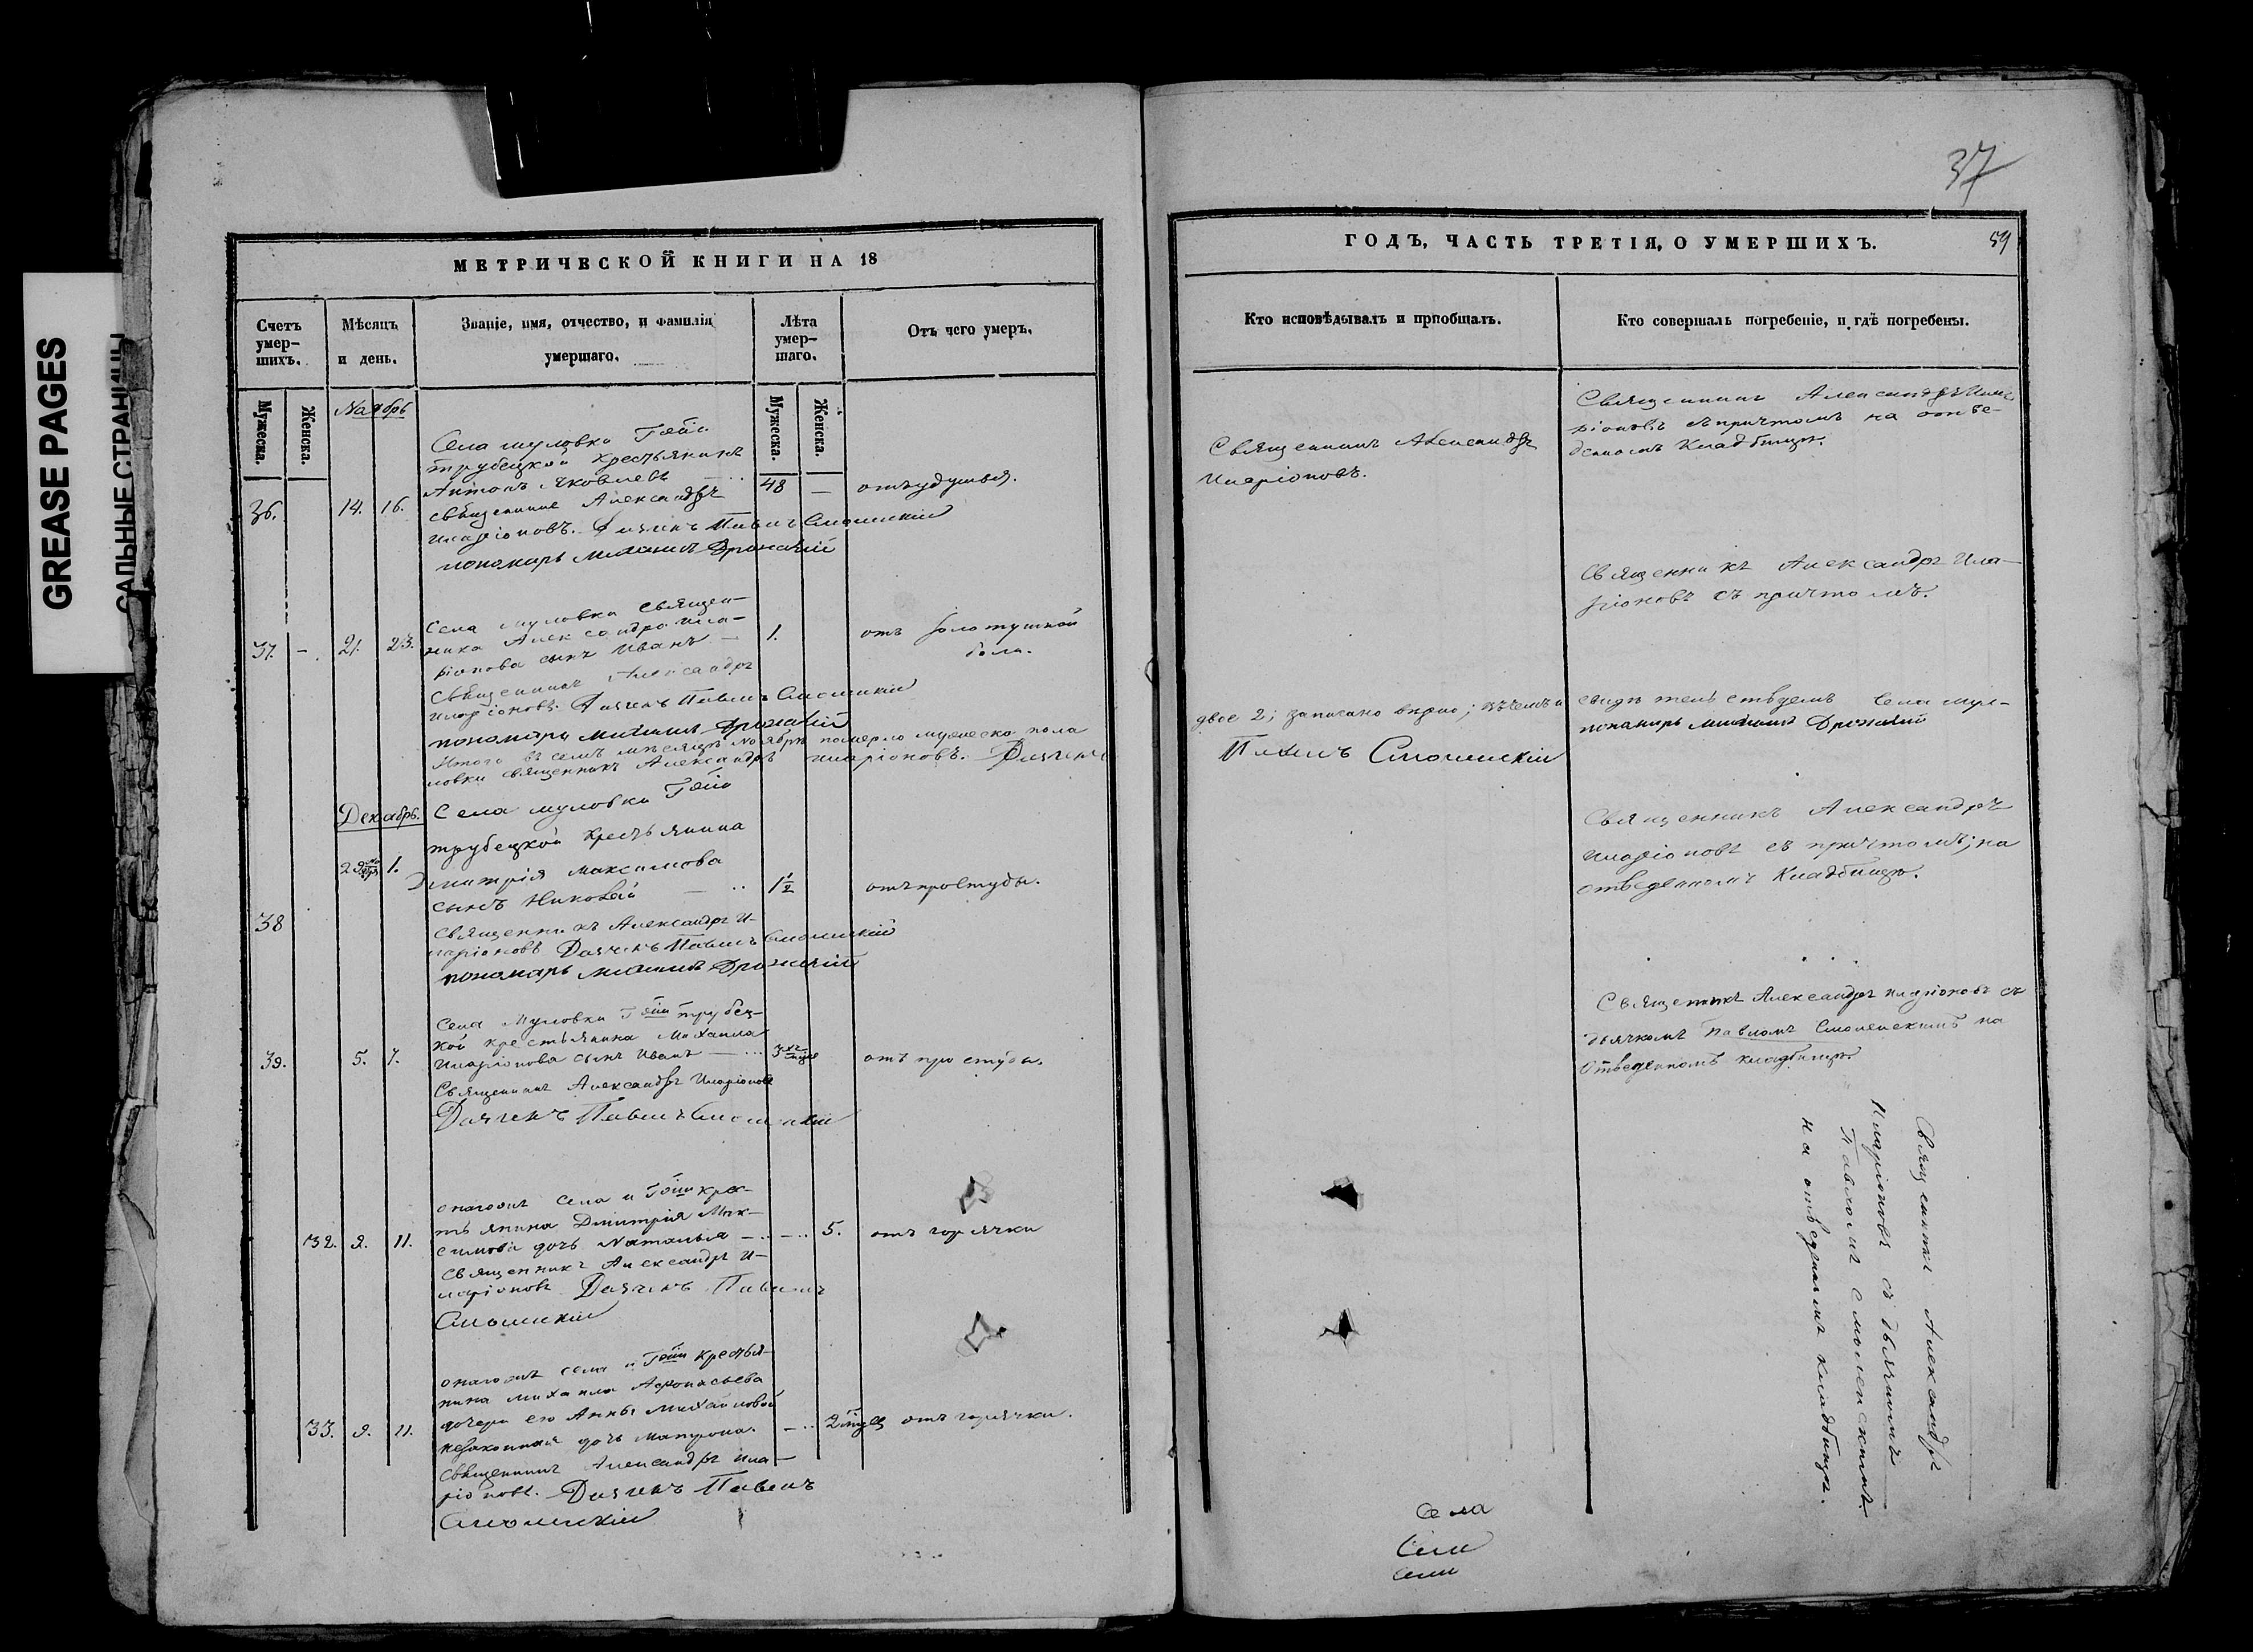 GREASE PAGES
САЛЬНЫЕ СТРАНИЦЫ
МЕТРИЧЕСКОЙ КНИГИ НА 18
Счетъ умерших.
Мѣсяцъ и день.
Званіе, имя, отчество, и фамилія умершаго.
Лѣта умершаго.
Отъ чего умеръ.
Мужеска.
Женска.
Мужеска.
Женска.
Наябрь
Села муловки
трубецкой крестьянинъ
Антонъ Яковлевъ
36. 14. 16. 48 — отъ удушья.
священникъ Александръ
Иларіоновъ. Дьячекъ Павелъ Смоленскій
пономарь Михаилъ
Села муловки священ-
ника Александра Ила-
ріонова сынъ Иванъ —
37. — 21. 23. 1. отъ золотушной
боли.
Священникъ Александръ
Иларіоновъ. Дьячекъ Павелъ Смоленскій
пономарь Михаилъ
Итого въ семъ мѣсяцѣ Ноябрѣ померло мужеска пола
ловки священникъ Александръ Иларіоновъ. Дьячекъ
Декабрь.
Села муловки
трубецкой крестьянина
1.
Дмитрія Максимова
сынъ Николай — 1½ отъ простуды.
38
Священникъ Александръ И-
ларіоновъ Дьячекъ Павелъ Смоленскій
пономарь Михаилъ
Села Муловки трубец-
кой крестьянина Михаила
Иларіонова сынъ Иванъ —
39. 5. 7. 3 отъ простуды.
Священникъ Александръ Иларіоновъ
Дьячекъ Павелъ Смоленскій
онагожъ села и крес-
тьянина Дмитрія Мак-
симова дочь Наталья —
32. 9. 11. 5. отъ горячки
Священникъ Александръ И-
ларіоновъ Дьячекъ Павелъ
Смоленскій
онагожъ села и крестья-
нина Михаила Афонасьева
дочери его Анны Михайловой
незаконная дочь Матрона.
33. 9. 11. 2 отъ горячки.
Священникъ Александръ Ила-
ріоновъ. Дьячекъ Павелъ
Смоленскій
37
ГОДЪ, ЧАСТЬ ТРЕТІЯ, О УМЕРШИХЪ.
59
Кто исповѣдывалъ и пріобщалъ.
Кто совершалъ погребеніе, и гдѣ погребены.
Священникъ Александръ
Иларіоновъ.
Священникъ Александръ Ила-
ріоновъ съ причтомъ на отве-
денномъ Кладбищѣ.
Священникъ Александръ Ила-
ріоновъ съ причтомъ.
двое 2; записано вѣрно; въ чемъ и
свидѣтельствуемъ Села мул-
Павелъ Смоленскій
пономарь Михаилъ
Священникъ Александръ
Иларіоновъ съ причтомъ; на
отведенномъ Кладбищѣ.
Священникъ Александръ Иларіоновъ съ
дьячкомъ Павломъ Смоленскимъ на
отведенномъ кладбищѣ.
Священникъ Александръ
Иларіоновъ съ дьячкомъ
Павломъ Смоленскимъ
на отведенномъ кладбищѣ.
Села
Села
Села